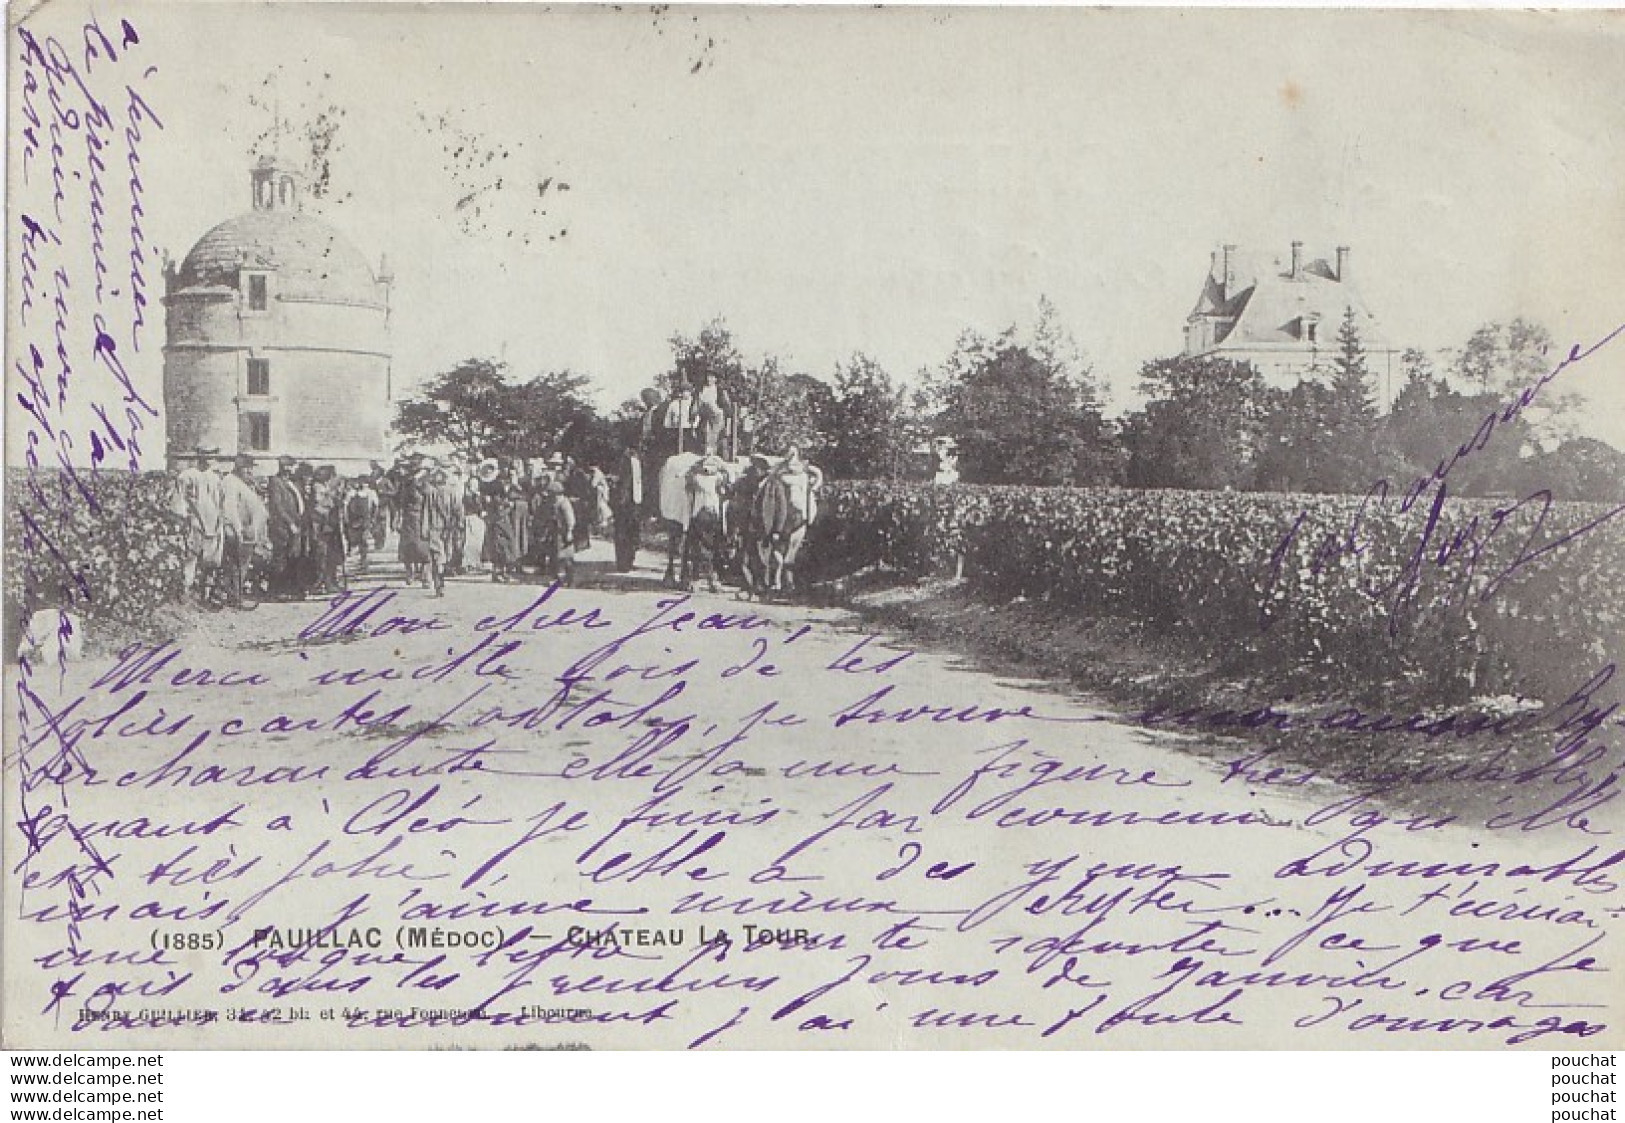 Mon cher Jean,
Merci mille fois de tes
jolies cartes postales, je trouve
charmante elle a une figure très agréable,
quant à Cléo je finis par convenir qu'elle
est très jolie, elle a des yeux admirables
mais, j'aime mieux ... Je t'écrirai
une longue lettre pour te raconter ce que je
fais dans les premiers jours de Janvier, car
dans ce moment j'ai une foule d'ouvrages
à terminer pour
le premier d t'a
trasse bien affect
ta Cousine
(1885) PAUILLAC (MÉDOC). — CHÂTEAU LA TOUR.
HENRY GUILLIER, 42 bis et 44, rue Fonneuve, Libourne
www.delcampe.net pouchat
www.delcampe.net pouchat
www.delcampe.net pouchat
www.delcampe.net pouchat